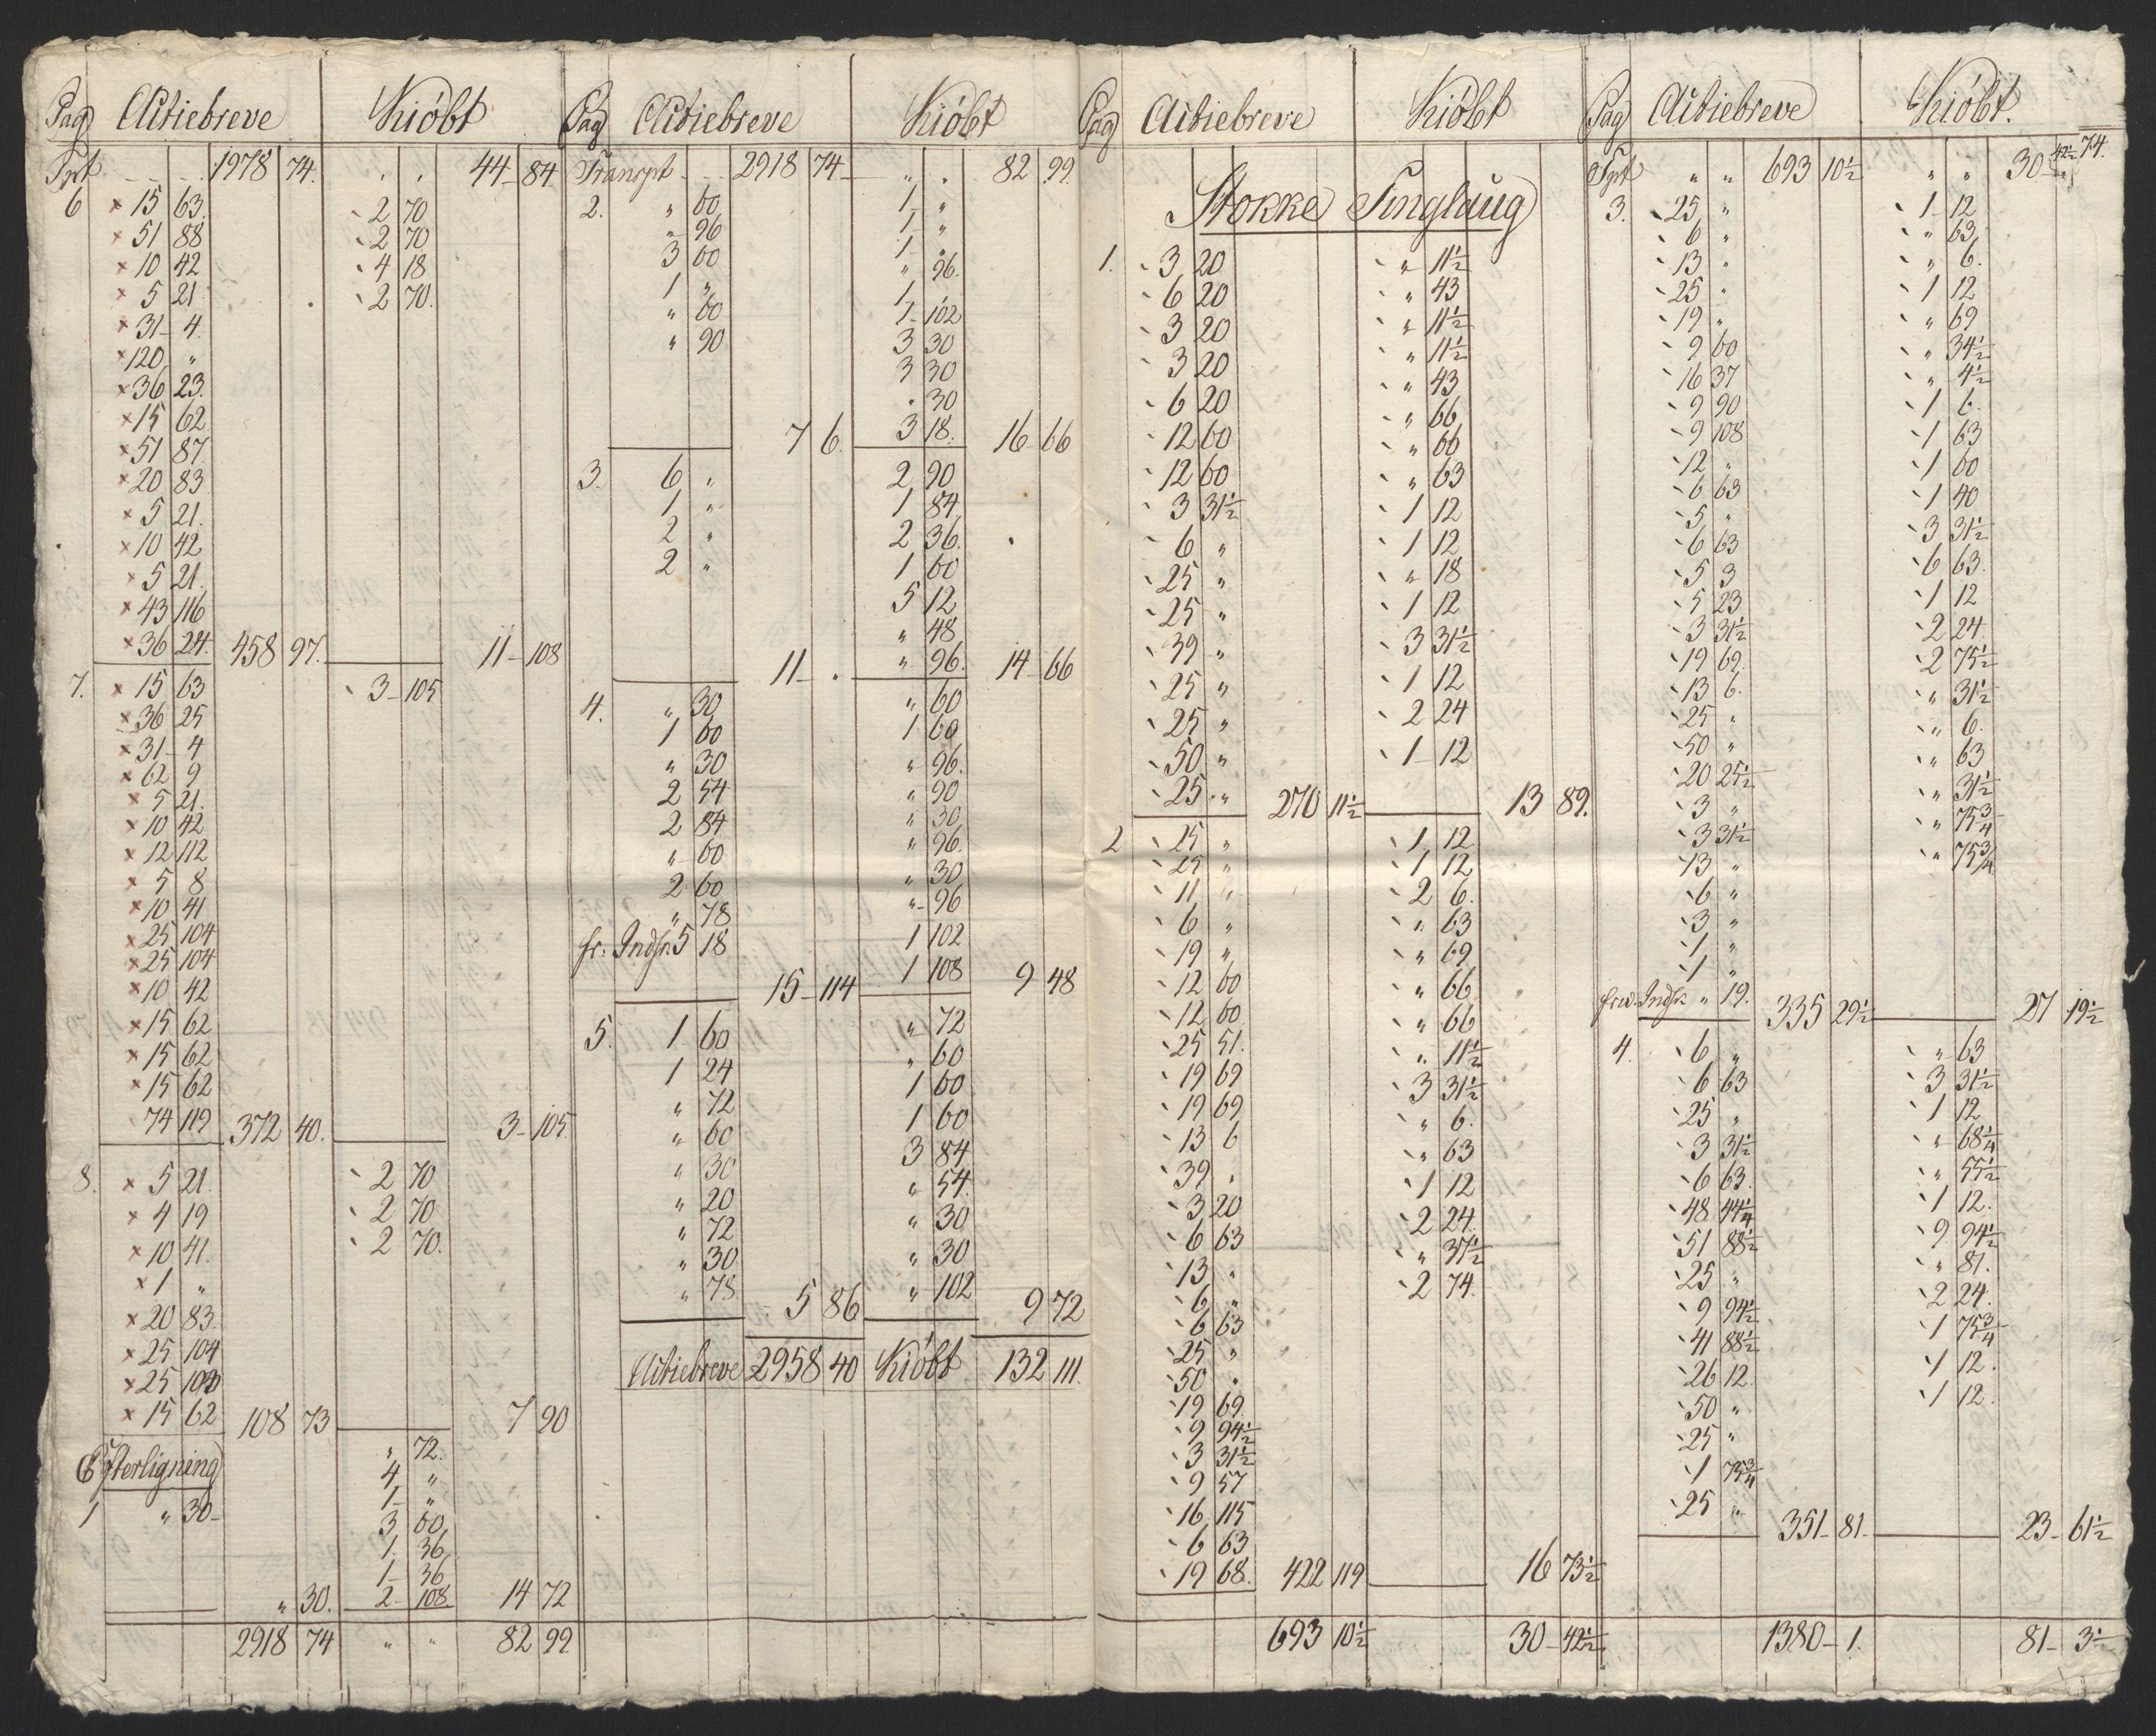 Pag Actiebreve Kiöbt
Trpt 1978 74. " " 44 - 84
6 × 15 63. 2 70
× 51 88 2 70
× 10 42 4 18
× 5 21 2 70.
× 31 - 4.
× 120 "
× 36 23.
× 15 62
× 51 87.
× 20 83
× 5 21.
× 10 42
× 5 21.
× 43 116
× 36 24. 458 97. 11 - 108
7. × 15 63 3 - 105
× 36 25
× 31 - 4
× 62 9
× 5 21.
× 10 42
× 12 112
× 5 8
× 10 41
× 25 104
× 25 104
× 10 42
× 15 62
× 15 62
× 15 62
74 119 372 40. 3 - 105
8. × 5 21. 2 70
× 4 19 2 70
× 10 41. 2 70.
× 1 "
× 20 83.
× 25 104
× 25 104
× 15 62 108 73 7 90
Efterligning " 72.
4 "
1 - "
1 " 30 - 3 60
1 36
1 - 36
" 30. 2 - 108. 14 72
2918 74 " " 82 99
Pag Actiebreve Kiöbt
Transpt 2918 74 - " . 82 99.
2. " 60 1 "
" 96 1 "
3 60 1 "
1 " " 96.
" 60 1 "
" 90 1 - 102
3 30
3 30
" 30
7 6. 3 18. 16 - 66
3. 6 " 2 90
1 " 1 84
2 " 2 36.
2 " 1 60
5 12
" 48
11 - . " 96. 14 - 66
4. " 30 " 60
1 60 1 60
" 30 " 96.
2 54 " 90
2 84 " 30
" 60 " 96.
2 60 " 30
" 78 " 96
fr: Indfr. 5 18 1 102
15 - 114 1 108 9 48
5. 1 60 " 72
1 24 " 60
" 72 1 60
" 60 1 60
" 30 3 84
" 20 " 54.
" 72 " 30
" 30 " 30
" 78 5 86 " 102 9 72
Actiebreve 2958 40 Kiöbt 132 111.
Pag Actiebreve Kiöbt
Stokke Tinglaug
1. 3 20 " 11½
6 20 " 43
3 20 " 11½
3 20 " 11½
6 20 " 43
12 60 " 66
12 60 " 66
3 31½ " 63
6 " 1 12
25 " 1 12
25 " " 18
39 " 1 12
25 " 3 31½
25 " 1 12
50 " 2 24
25 " 270 11½ 1 - 12 13 89.
2 25 " 1 12
25 " 1 12
11 " 2 6.
6 " " 63
19 " " 69
12 60 " 66
12 60 " 66
25 51. " 11½
19 69 3 31½
19 69 " 6.
13 6 " 63
39 . 1 12
3 20 2 24.
6 63 " 37½
13 " 2 74.
6 "
6 63
25 "
50 "
19 69
9 94½
3 31½
9 57
16 115
6 63
19 68. 422 119 16 73½
693 10½ 30 - 42½
Pag Actiebreve Kiöbt.
Trpt " " 693 10½ " " 30 - 42½ 74.
3. 25 " 1 - 12
6 " " 63
13 " " 6.
25 " 1 12
19 " " 69
9 60 " 34½
16 37 " 4½
9 90 1 6.
9 108 1 63
12 " 1 60
6 63 1 40
5 " 3 31½
6 63 6 63.
5 3 1 12
5 23 2 24.
3 31½ 2 75½
19 69. " 31½
13 6. " 6.
25 " " 63
50 " " 31½
20 25½ " 75¾
3 " " 75¾
3 31½
13 "
6 "
3 "
1 "
1 "
" 19. 335 29½ 27 19½
4. 6 " " 63
6 63 3 31½
25 " 1 12
3 31½ " 68¼
6 63. " 55½
48 44¼ 1 12.
51 88½ 9 94½
25 " " 81.
9 94½ 2 24.
41 88½ 1 75¾
26 12. 1 12.
50 " 1 12.
25 "
1 75¾
25 " 351 - 81 - 23 - 61½
1380 - 1. 81 - 3½